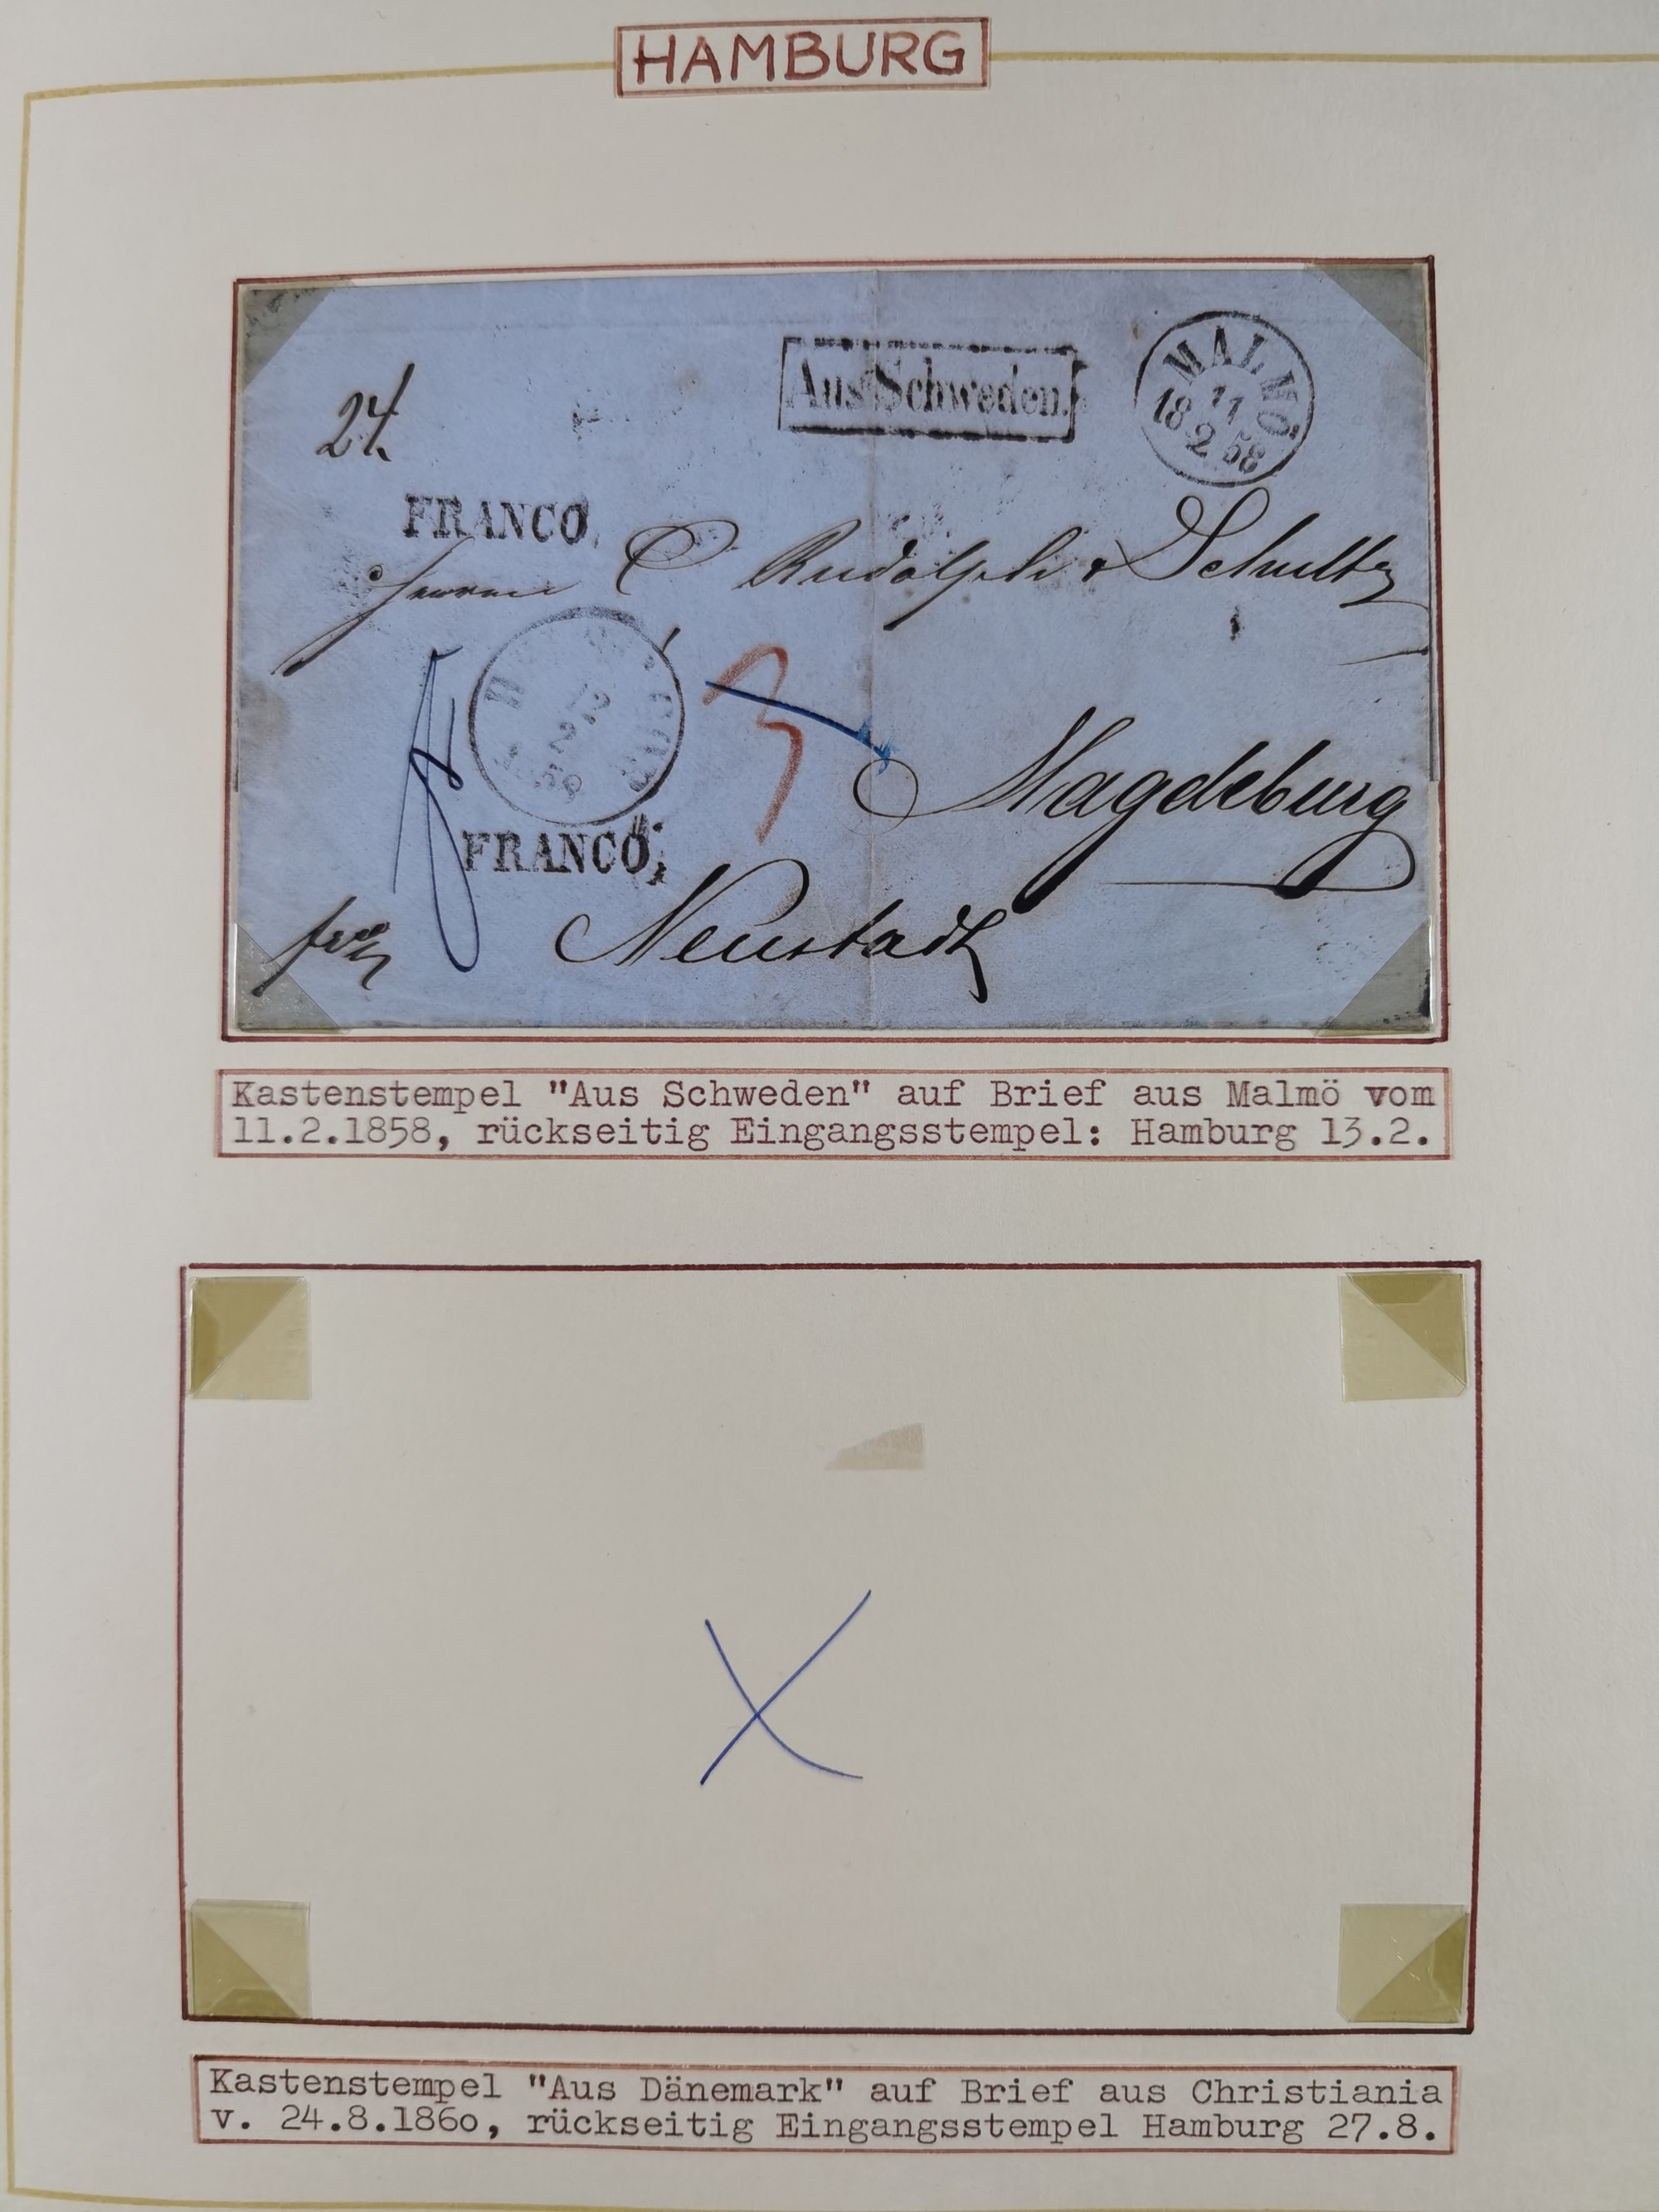 HAMBURG
24.
Aus Schweden.
MALMÖ
11
18 2 58
FRANCO.
C Rudolph & Schultz
12
2
3
Magdeburg
FRANCO.
Neustadt
Kastenstempel "Aus Schweden" auf Brief aus Malmö vom
11.2.1858, rückseitig Eingangsstempel: Hamburg 13.2.
Kastenstempel "Aus Dänemark" auf Brief aus Christiania
v. 24.8.1860, rückseitig Eingangsstempel Hamburg 27.8.